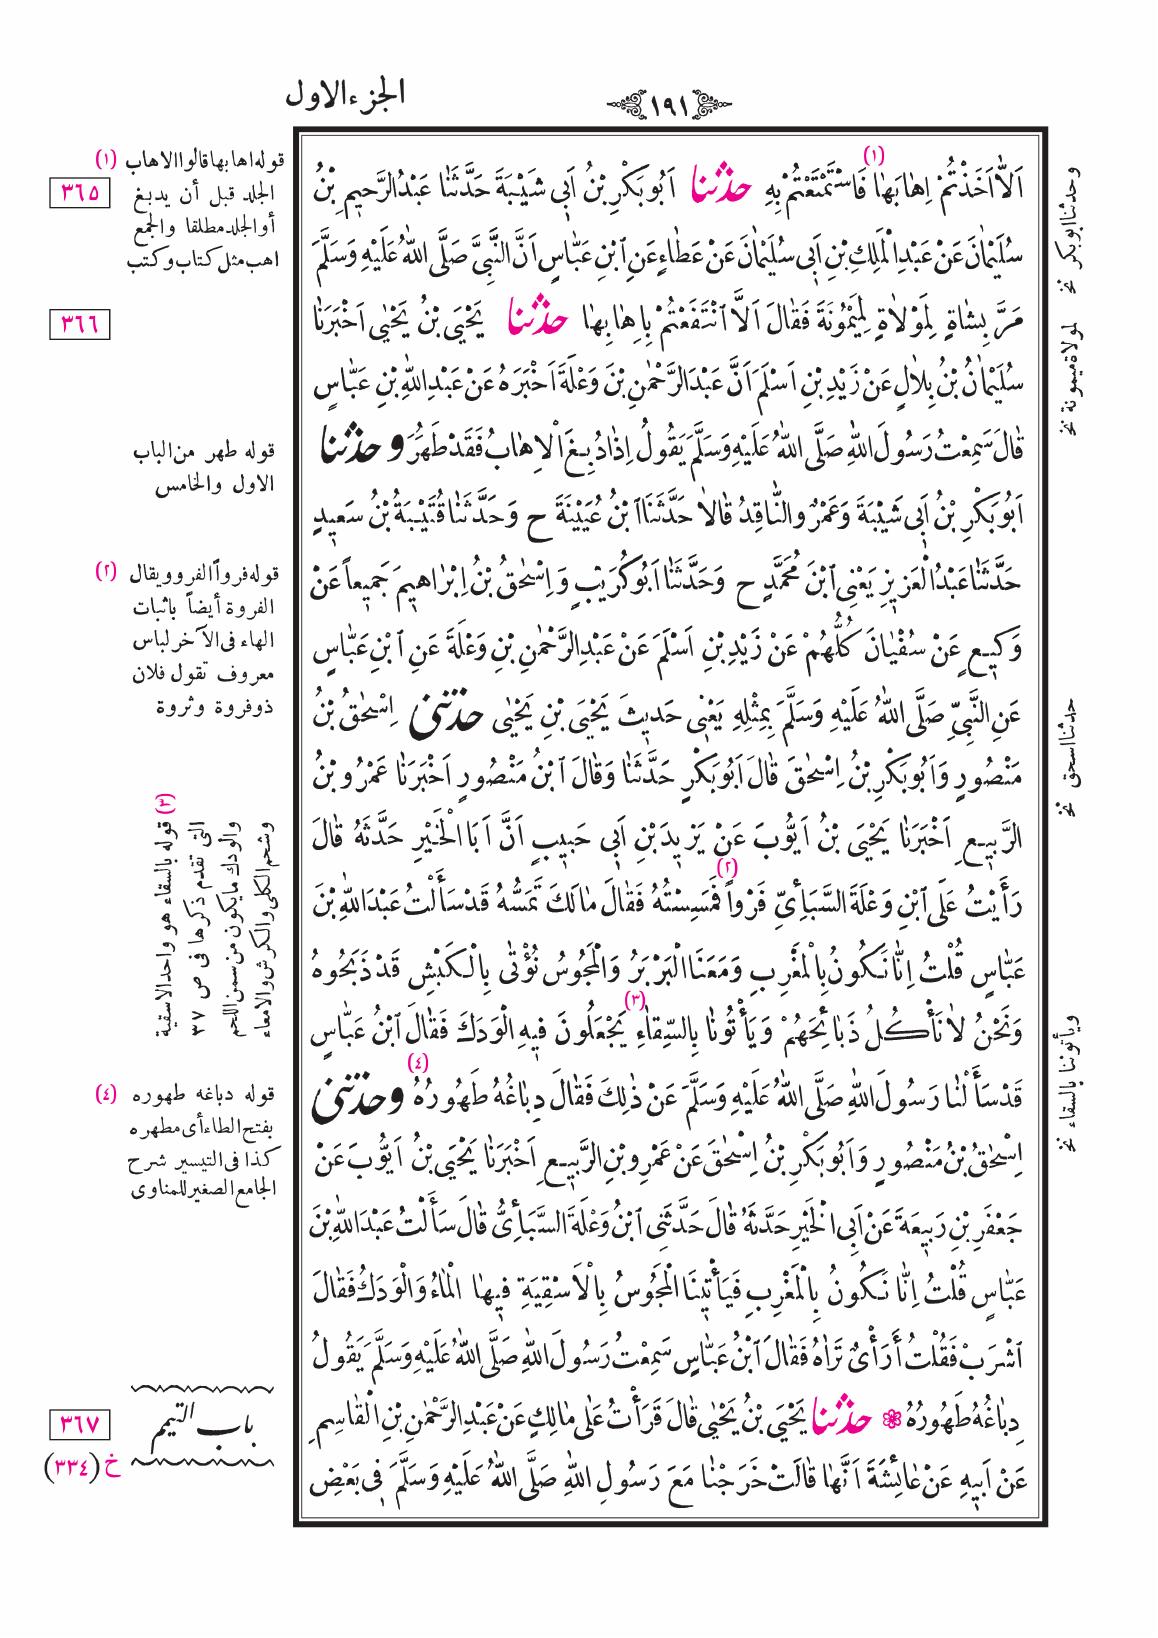 الجزء الاول
١٩١
اَلاّٰ اَخَذْتُمْ اِهَابَهَا (١) فَاسْتَمْتَعْتُمْ بِهِ حدثنا اَبُوبَكْرِ بْنُ اَبِى شَيْبَةَ حَدَّثَنَا عَبْدُالرَّحِيمِ بْنُ
سُلَيْمَانَ عَنْ عَبْدِالْمَلِكِ بْنِ اَبِى سُلَيْمَانَ عَنْ عَطَاءٍ عَنِ ابْنِ عَبَّاسٍ اَنَّ النَّبِىَّ صَلَّى اللهُ عَلَيْهِ وَسَلَّمَ
مَرَّ بِشَاةٍ لِمَوْلَاةٍ لِمَيْمُونَةَ فَقَالَ اَلاَّ انْتَفَعْتُمْ بِاِهَابِهَا حدثنا يَحْيَى بْنُ يَحْيَى اَخْبَرَنَا
سُلَيْمَانُ بْنُ بِلَالٍ عَنْ زَيْدِ بْنِ اَسْلَمَ اَنَّ عَبْدَالرَّحْمٰنِ بْنَ وَعْلَةَ اَخْبَرَهُ عَنْ عَبْدِاللهِ بْنِ عَبَّاسٍ
قَالَ سَمِعْتُ رَسُولَ اللهِ صَلَّى اللهُ عَلَيْهِ وَسَلَّمَ يَقُولُ اِذَا دُبِغَ الْاِهَابُ فَقَدْ طَهُرَ وحدثنا
اَبُوبَكْرِ بْنُ اَبِى شَيْبَةَ وَعَمْرٌو النَّاقِدُ قَالَا حَدَّثَنَا ابْنُ عُيَيْنَةَ ح وَحَدَّثَنَا قُتَيْبَةُ بْنُ سَعِيدٍ
حَدَّثَنَا عَبْدُالْعَزِيزِ يَعْنِى ابْنَ مُحَمَّدٍ ح وَحَدَّثَنَا اَبُوكُرَيْبٍ وَاِسْحٰقُ بْنُ اِبْرَاهِيمَ جَمِيعاً عَنْ
وَكِيعٍ عَنْ سُفْيَانَ كُلُّهُمْ عَنْ زَيْدِ بْنِ اَسْلَمَ عَنْ عَبْدِالرَّحْمٰنِ بْنِ وَعْلَةَ عَنِ ابْنِ عَبَّاسٍ
عَنِ النَّبِىِّ صَلَّى اللهُ عَلَيْهِ وَسَلَّمَ بِمِثْلِهِ يَعْنِى حَدِيثَ يَحْيَى بْنِ يَحْيَى حدثنى اِسْحٰقُ بْنُ
مَنْصُورٍ وَاَبُوبَكْرِ بْنُ اِسْحٰقَ قَالَ اَبُوبَكْرٍ حَدَّثَنَا وَقَالَ ابْنُ مَنْصُورٍ اَخْبَرَنَا عَمْرُو بْنُ
الرَّبِيعِ اَخْبَرَنَا يَحْيَى بْنُ اَيُّوبَ عَنْ يَزِيدَ بْنِ اَبِى حَبِيبٍ اَنَّ اَبَا الْخَيْرِ حَدَّثَهُ قَالَ
رَأَيْتُ عَلَى ابْنِ وَعْلَةَ السَّبَأِىِّ فَرْواً (٢) فَمَسِسْتُهُ فَقَالَ مَالَكَ تَمَسُّهُ قَدْ سَأَلْتُ عَبْدَاللهِ بْنَ
عَبَّاسٍ قُلْتُ اِنَّا نَكُونُ بِالْمَغْرِبِ وَمَعَنَا الْبَرْبَرُ وَالْمَجُوسُ نُؤْتَى بِالْكَبْشِ قَدْ ذَبَحُوهُ
وَنَحْنُ لَا نَأْكُلُ ذَبَائِحَهُمْ وَيَأْتُونَا بِالسِّقَاءِ (٣) يَجْعَلُونَ فِيهِ الْوَدَكَ فَقَالَ ابْنُ عَبَّاسٍ
قَدْ سَأَلْنَا رَسُولَ اللهِ صَلَّى اللهُ عَلَيْهِ وَسَلَّمَ عَنْ ذٰلِكَ فَقَالَ دِبَاغُهُ طَهُورُهُ (٤) وحدثنى
اِسْحٰقُ بْنُ مَنْصُورٍ وَاَبُوبَكْرِ بْنُ اِسْحٰقَ عَنْ عَمْرِو بْنِ الرَّبِيعِ اَخْبَرَنَا يَحْيَى بْنُ اَيُّوبَ عَنْ
جَعْفَرِ بْنِ رَبِيعَةَ عَنْ اَبِى الْخَيْرِ حَدَّثَهُ قَالَ حَدَّثَنِى ابْنُ وَعْلَةَ السَّبَأِىُّ قَالَ سَأَلْتُ عَبْدَاللهِ بْنَ
عَبَّاسٍ قُلْتُ اِنَّا نَكُونُ بِالْمَغْرِبِ فَيَأْتِينَا الْمَجُوسُ بِالْاَسْقِيَةِ فِيهَا الْمَاءُ وَالْوَدَكُ فَقَالَ
اشْرَبْ فَقُلْتُ أَرَأْىٌ تَرَاهُ فَقَالَ ابْنُ عَبَّاسٍ سَمِعْتُ رَسُولَ اللهِ صَلَّى اللهُ عَلَيْهِ وَسَلَّمَ يَقُولُ
دِبَاغُهُ طَهُورُهُ ❁ حدثنا يَحْيَى بْنُ يَحْيَى قَالَ قَرَأْتُ عَلَى مَالِكٍ عَنْ عَبْدِالرَّحْمٰنِ بْنِ الْقَاسِمِ
عَنْ اَبِيهِ عَنْ عَائِشَةَ اَنَّهَا قَالَتْ خَرَجْنَا مَعَ رَسُولِ اللهِ صَلَّى اللهُ عَلَيْهِ وَسَلَّمَ فِى بَعْضِ
وحدثنا ابوبكر نخ
لمولاة ميمونة نخ
حدثنا اسحق نخ
ويأتوننا بالسقاء نخ
(١) قوله اهابها قالوا الاهاب
الجلد قبل أن يدبغ
أو الجلد مطلقا والجمع
اهب مثل كتاب وكتب
٣٦٥
٣٦٦
قوله طهر من الباب
الاول والخامس
(٢) قوله فرواً الفرو ويقال
الفروة أيضاً باثبات
الهاء فى الآخر لباس
معروف تقول فلان
ذو فروة وثروة
(٣) قوله بالسقاء هو واحد الاسقية
التى تقدم ذكرها فى ص ٣٧
والودك ما يكون من سمن اللحم
وشحم الكلى والكرش والامعاء
(٤) قوله دباغه طهوره
بفتح الطاء أى مطهره
كذا فى التيسير شرح
الجامع الصغير للمناوى
باب التيمم
٣٦٧
خ (٣٣٤)